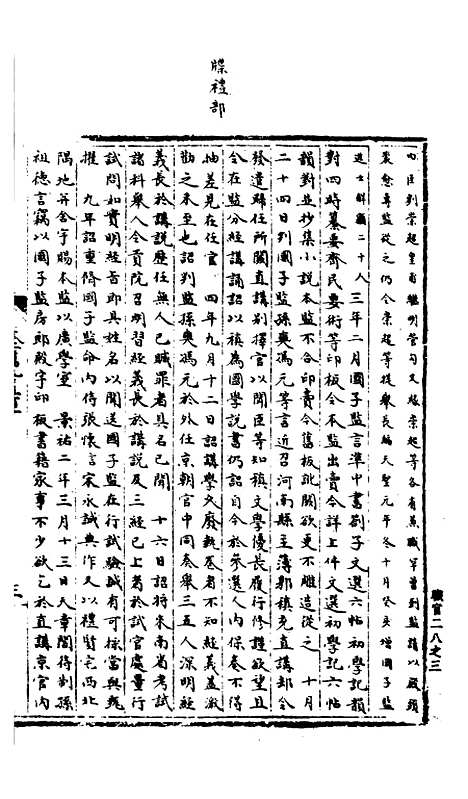 牒禮部
內臣劉崇超皇甫繼明管勾又緣崇超等各有兼職罕曾到監講以嚴頭
裴愈專監從之仍令崇超等提舉長編天聖元年冬十月癸亥增國子監
進士解額二十人　三年二月國子監言準中書劄子文選六帖初學記韻
對四時纂要齊民要術等印板令本監出賣今詳上件文選初學記六帖
韻對並抄集小說本監不合印賣今舊板訛闕欲更不雕造從之　十月
二十四日判國子監孫奭馮元等言近召河南縣主簿郭稹充直講却令
發遣歸任所闕直講別擇官以聞臣等知稹文學優長履行修謹欲望且
令在監分經講誦詔以稹為國學說書仍詔自今於參選人內保奏不得
抽差見在任官　四年九月十二日詔講學久廢執卷者不知經義蓋激
勸之未至也詔判監孫奭馮元於外任京朝官中同奏舉三五人深明經
義長於講說歷任無人已贓罪者具名已聞　十六日詔將來南省考試
諸科舉人令貢院召明習經義長於講說及三經已上者於試官處量行
試問如實明經旨即具姓名以聞送國子監在行試驗誠有可採當與甄
擢　九年詔重脩國子監命內侍張懷言宋永誠典作又以禮賢宅西北
隅地并舍宇賜本監以廣學室　景祐二年三月十三日天章閣待制孫
祖德言竊以國子監房廊殿宇印板書籍家事不少欲乞於直講京官內
職官二八之三
三